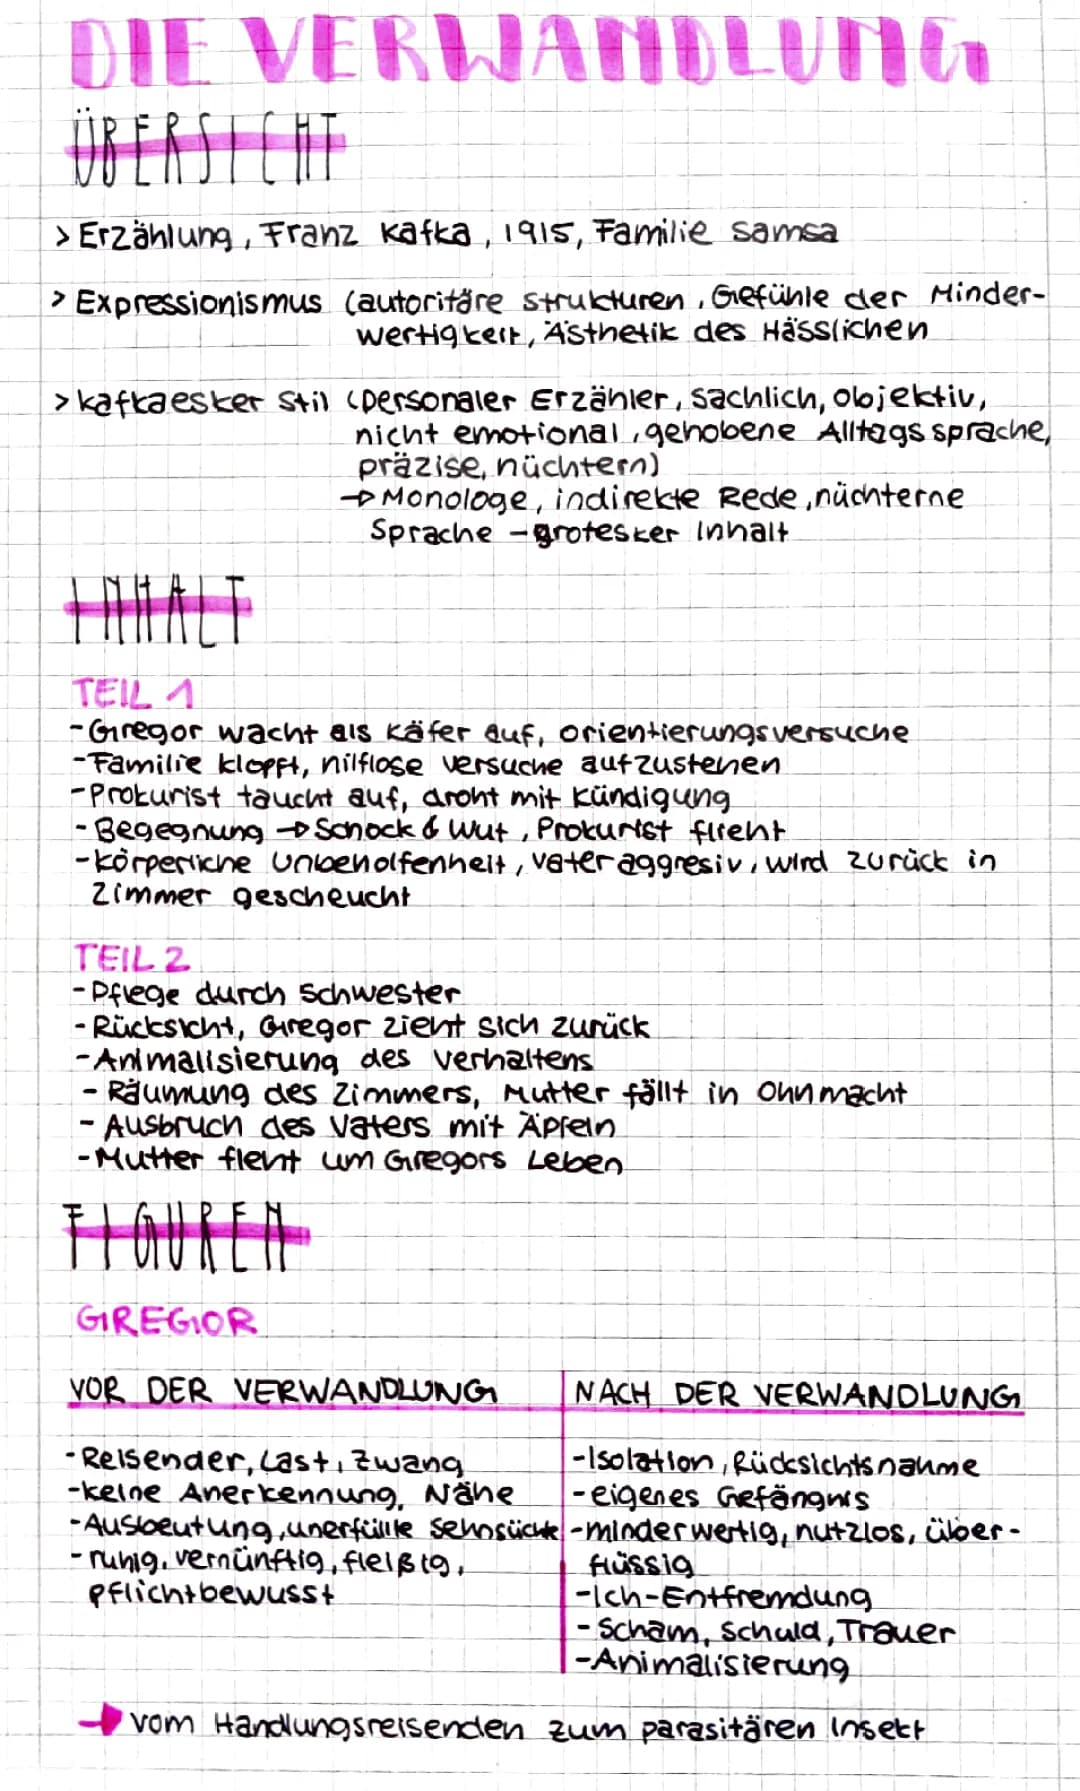 DIE VERWANDLUNG
ÜBERSICHT
> Erzählung, Franz Kafka, 1915, Familie Samsa
> Expressionismus (autoritäre Strukturen, Gefühle der Minder-
wertigkeit, Ästhetik des Hässlichen
> kafkaesker Stil (personaler Erzähler, sachlich, objektiv,
nicht emotional, gehobene Alltagssprache,
präzise, nüchtern)
→ Monologe, indirekte Rede, nüchterne
Sprache - grotesker Inhalt
INHALT
TEIL 1
- Gregor wacht als Käfer auf, Orientierungsversuche
- Familie klopft, hilflose Versuche aufzustehen
- Prokurist taucht auf, droht mit Kündigung
- Begegnung → Schock & Wut, Prokurist flieht
- körperliche Unbeholfenheit, Vater aggresiv, wird zurück in
Zimmer gescheucht
TEIL 2
- Pflege durch Schwester
- Rücksicht, Gregor zieht sich zurück
- Animalisierung des Verhaltens
- Räumung des Zimmers, Mutter fällt in Ohnmacht
- Ausbruch des Vaters mit Äpfeln
- Mutter fleht um Gregors Leben
FIGUREN
GREGOR
VOR DER VERWANDLUNG
- Reisender, Last, Zwang
- keine Anerkennung, Nähe
- Ausbeutung, unerfüllte Sehnsüchte
- ruhig, vernünftig, fleißig,
pflichtbewusst
NACH DER VERWANDLUNG
- Isolation, Rücksichtsnahme
- eigenes Gefängnis
- minderwertig, nutzlos, über-
flüssig
- Ich-Entfremdung
- Scham, Schuld, Trauer
- Animalisierung
→ vom Handlungsreisenden zum parasitären Insekt